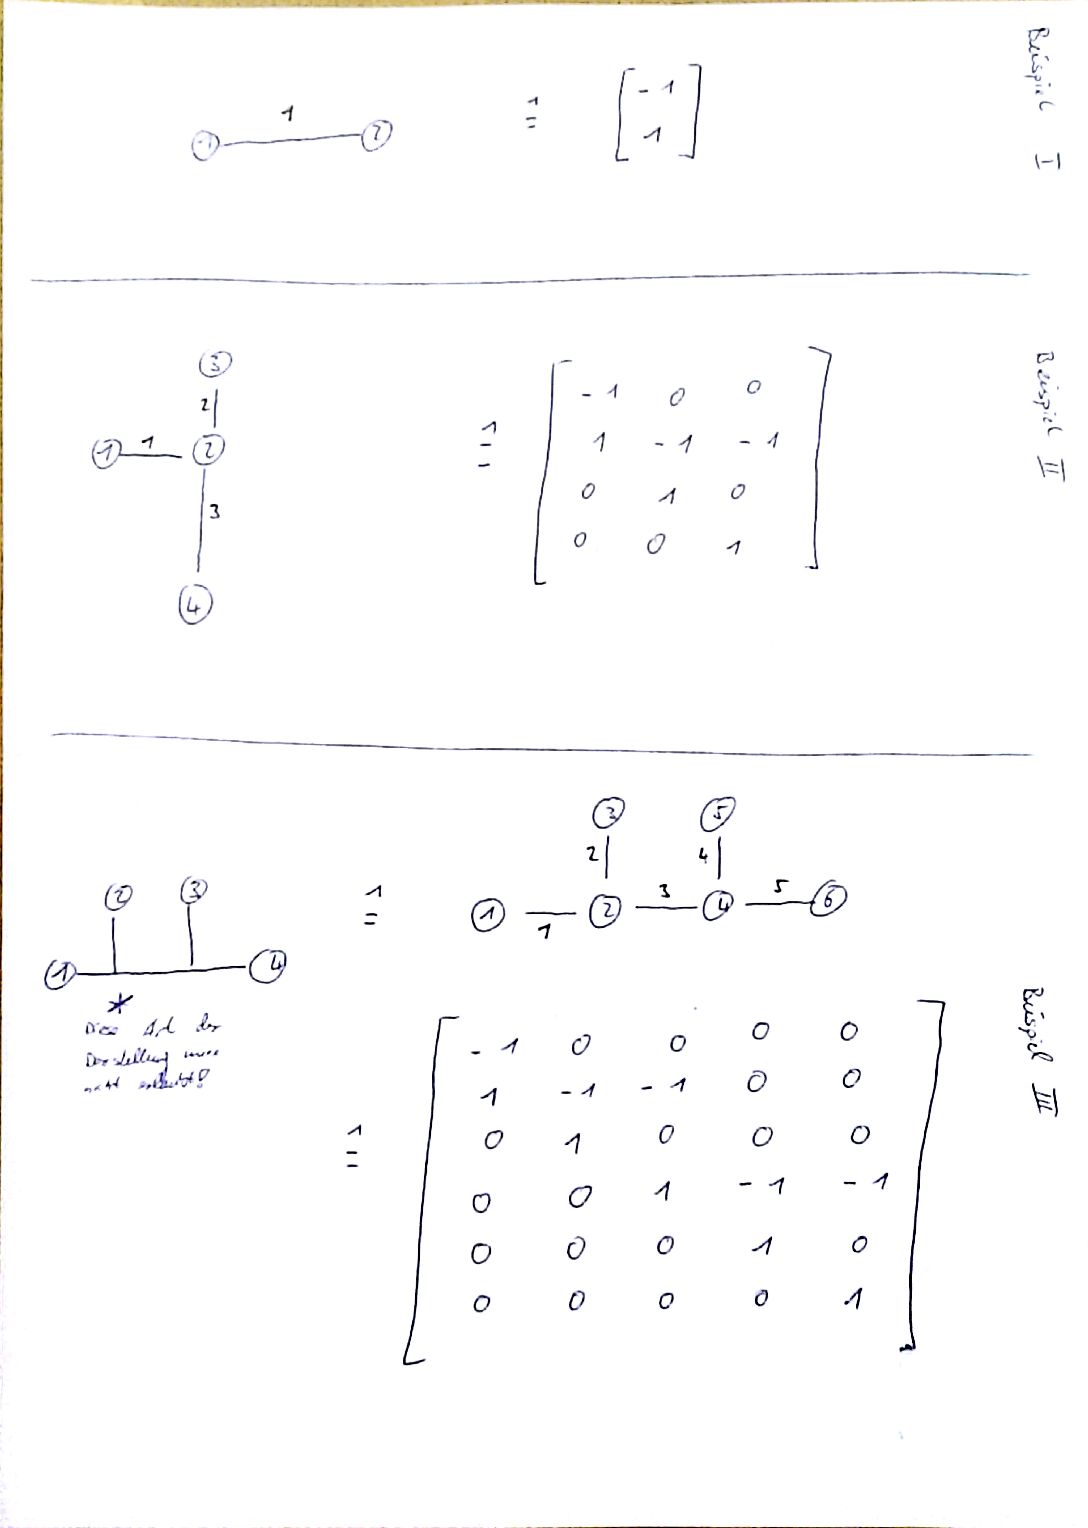 Beispiel I
1
1 2
≙
-1
1
Beispiel II
3
2
1 1 2
3
4
≙
-1 0 0
1 -1 -1
0 1 0
0 0 1
Beispiel III
2 3
1 4
*
Diese Art der
Darstellung
nicht erlaubt!
≙
3 5
2 4
1 2 3 4 5 6
1
≙
-1 0 0 0 0
1 -1 -1 0 0
0 1 0 0 0
0 0 1 -1 -1
0 0 0 1 0
0 0 0 0 1